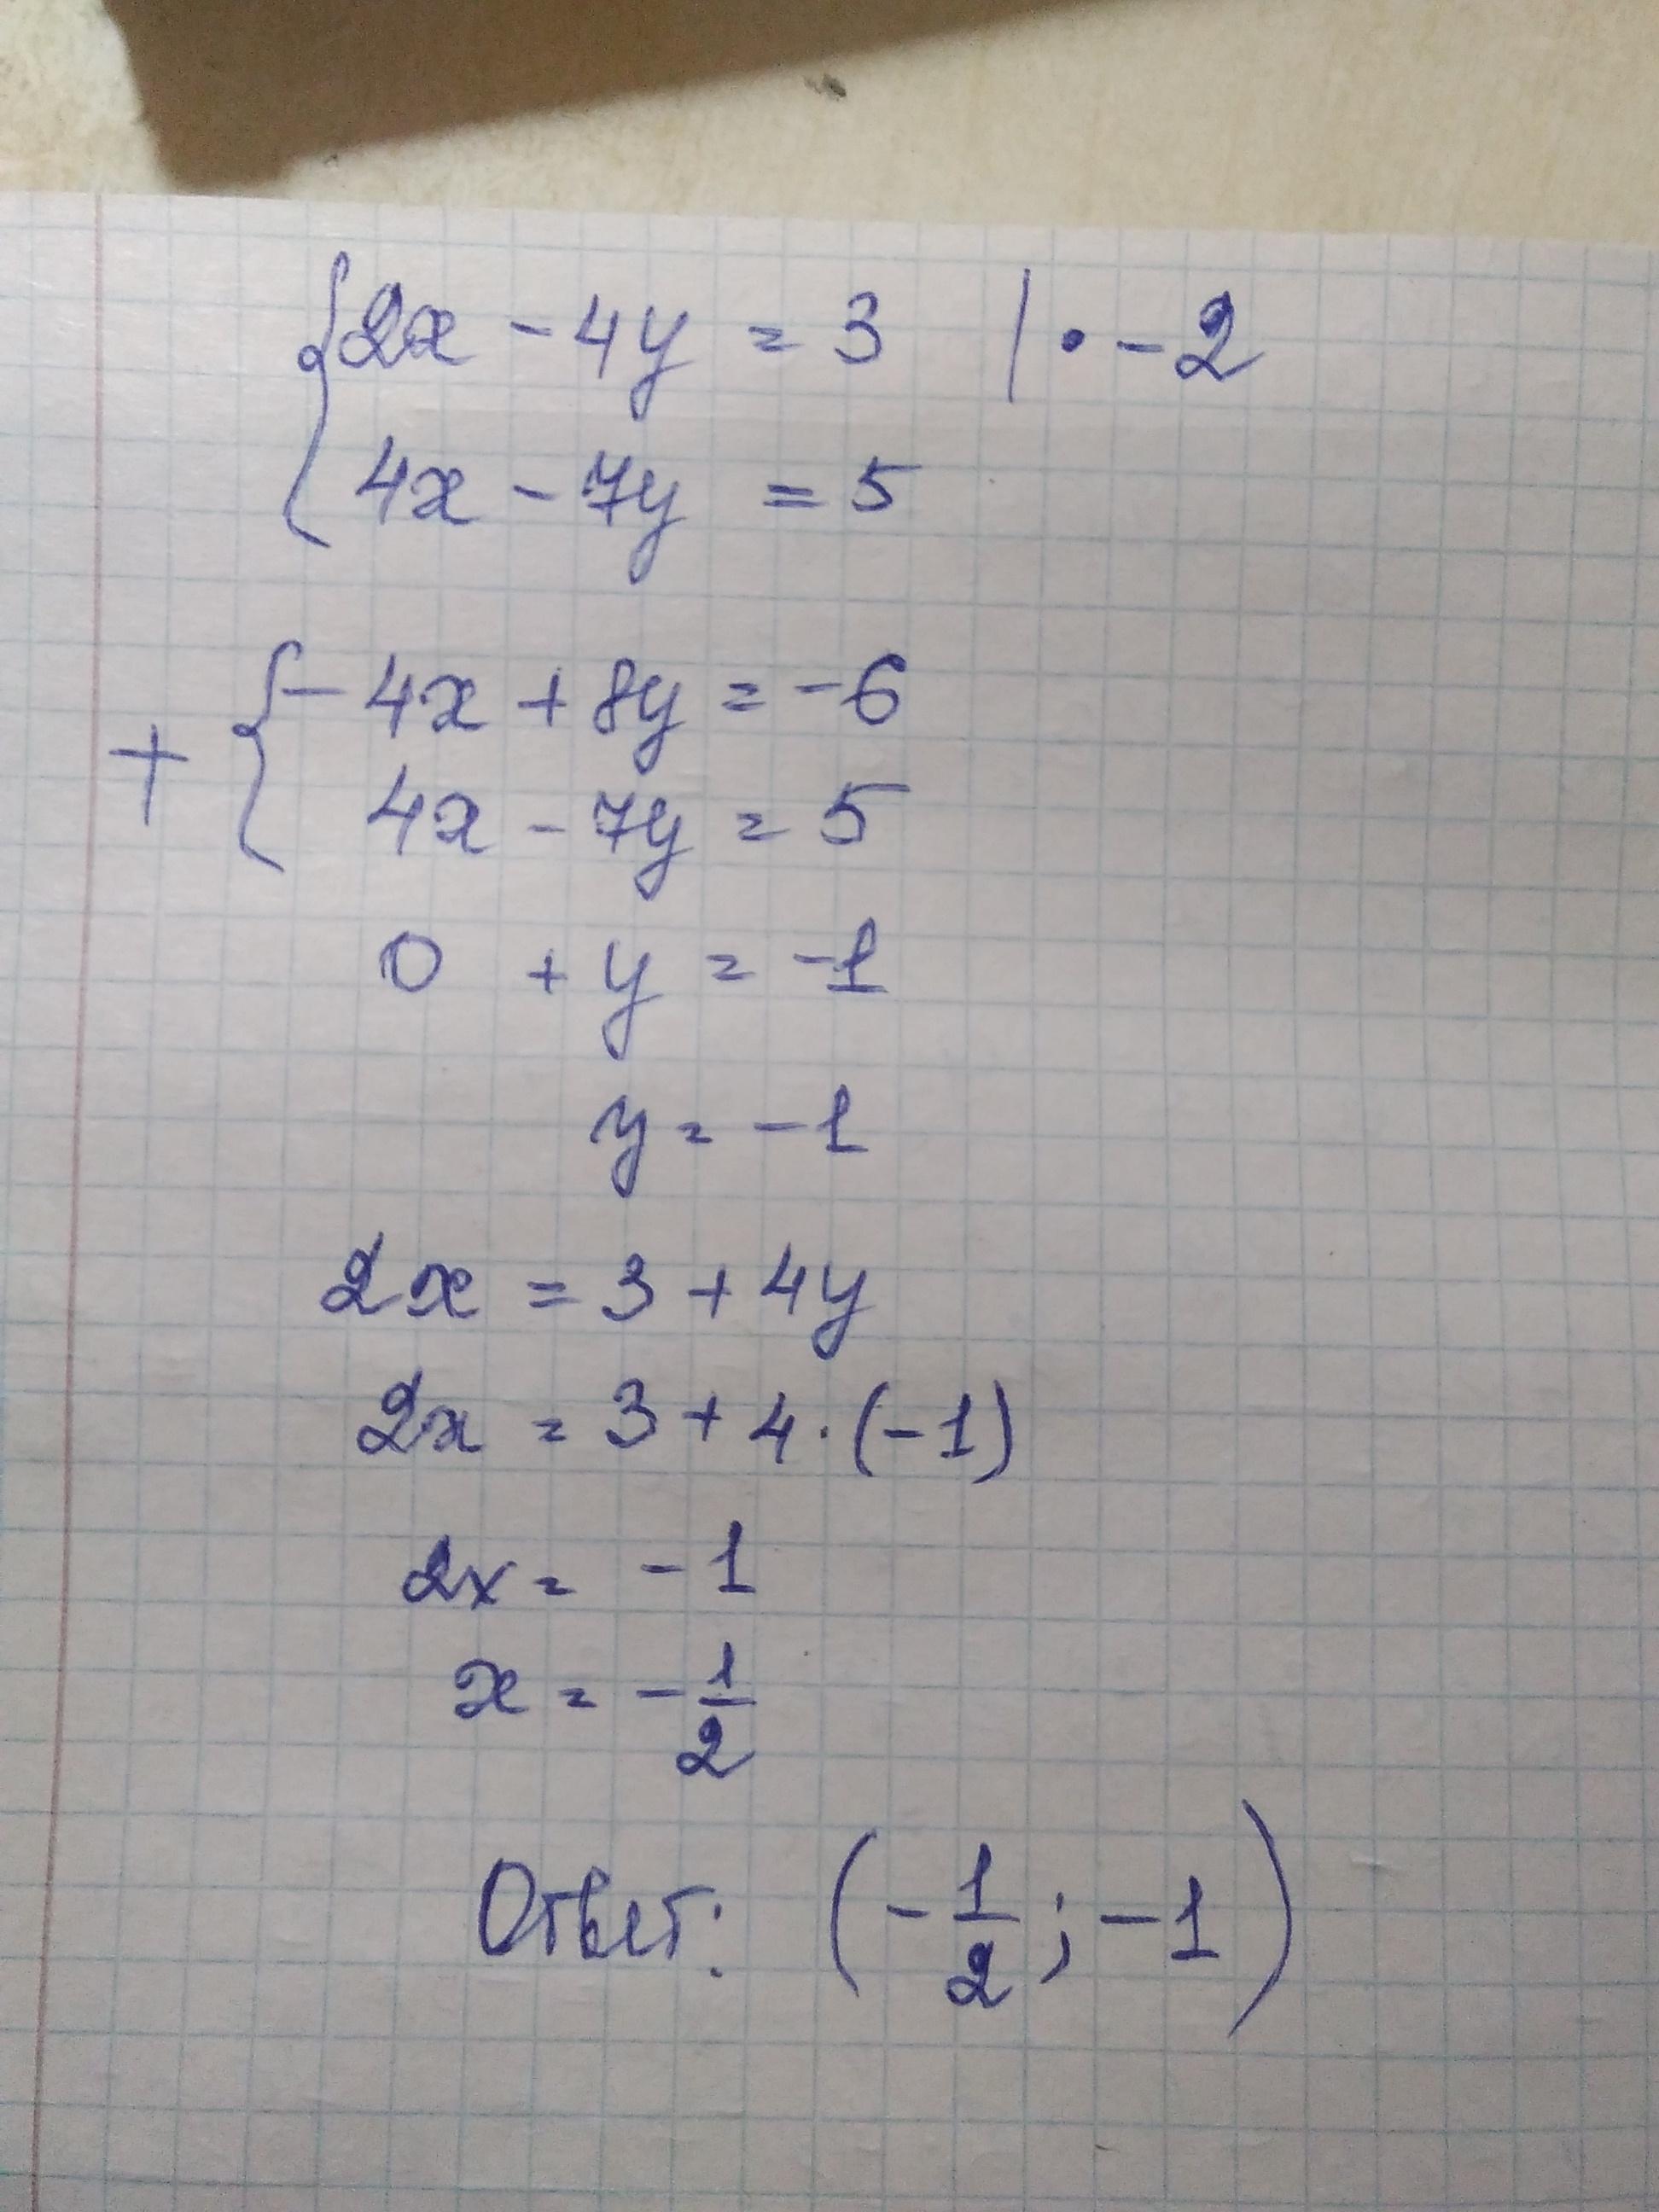 {2x - 4y = 3 | • -2
4x - 7y = 5
+ {-4x + 8y = -6
4x - 7y = 5
0 + y = -1
y = -1
2x = 3 + 4y
2x = 3 + 4 · (-1)
2x = -1
x = -1/2
Ответ: (-1/2; -1)